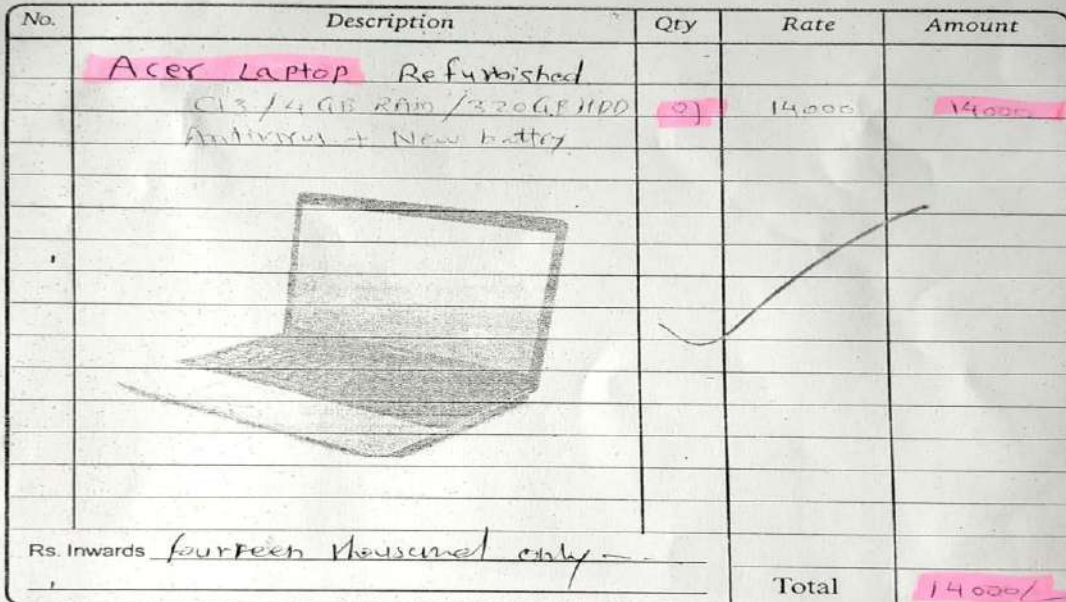 No. Description Qty Rate Amount
Acer Laptop Refurbished
Ci3 / 4 GB RAM / 320GB HDD 01 14000 14000
Antivirus + New battry
Rs. Inwards fourteen thousand only
Total 14000/